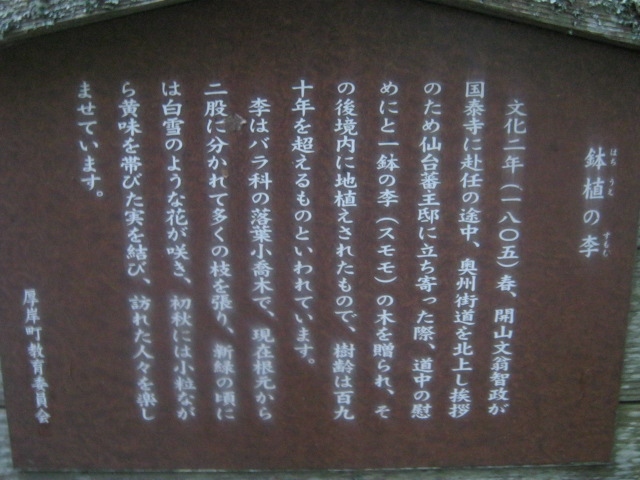 鉢植の李
はち うえ すもも
文化二年(一八〇五)春、開山文翁智政が
国泰寺に赴任の途中、奥州街道を北上し挨拶
のため仙台蕃王邸に立ち寄った際、道中の慰
めにと一鉢の李(スモモ)の木を贈られ、そ
の後境内に地植えされたもので、樹齢は百九
十年を超えるものといわれています。
李はバラ科の落葉小喬木で、現在根元から
二股に分かれて多くの枝を張り、新緑の頃に
は白雪のような花が咲き、初秋には小粒なが
ら黄味を帯びた実を結び、訪れた人々を楽し
ませています。
厚岸町教育委員会